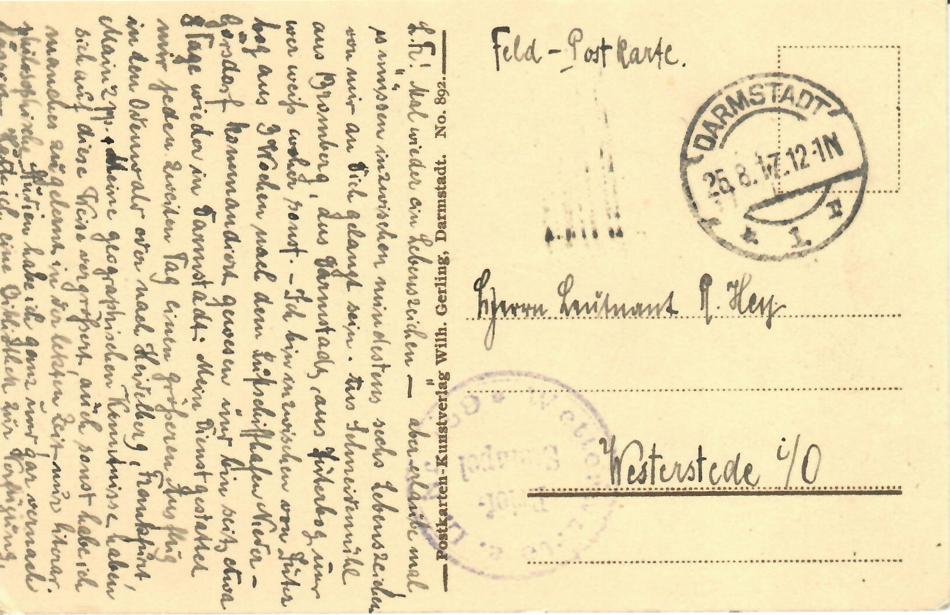 Feld-Postkarte.
DARMSTADT
25.8.17.12-1N
* 1.
Herrn Leutnant P. Hey
Westerstede i/O
Wetter
Brief-
Stempel
Postkarten-Kunstverlag Wilh. Gerling, Darmstadt. No. 892.
L.P.! Mal wieder ein Lebenszeichen — aber erlaube mal
es müssen inzwischen mindestens sechs Lebenszeichen
von mir an Dich gelangt sein. Aus Schneidemühl
aus Bromberg, aus Darmstadt, aus Jüterbog, un
wer weiss woher sonst. – Ich bin inzwischen von Jüter
bog aus 3 Wochen nach dem Luftschiffhafen Nieder-
Görsdorf kommandiert gewesen und bin seit etwa
8 Tage wieder in Darmstadt. Mein Dienst gestattet
mir jeden zweiten Tag einen größeren Ausflug
in den Odenwald oder nach Heidelberg, Frankfurt,
Mainz pp. Meine geographischen Kenntnisse haben
sich auf diese Weise vergrößert, auch sonst habe ich
manches zugelernt in der letzten Zeit nur literar.
philosophische Studien habe ich ganz und gar vernach
eine zur Verfügung